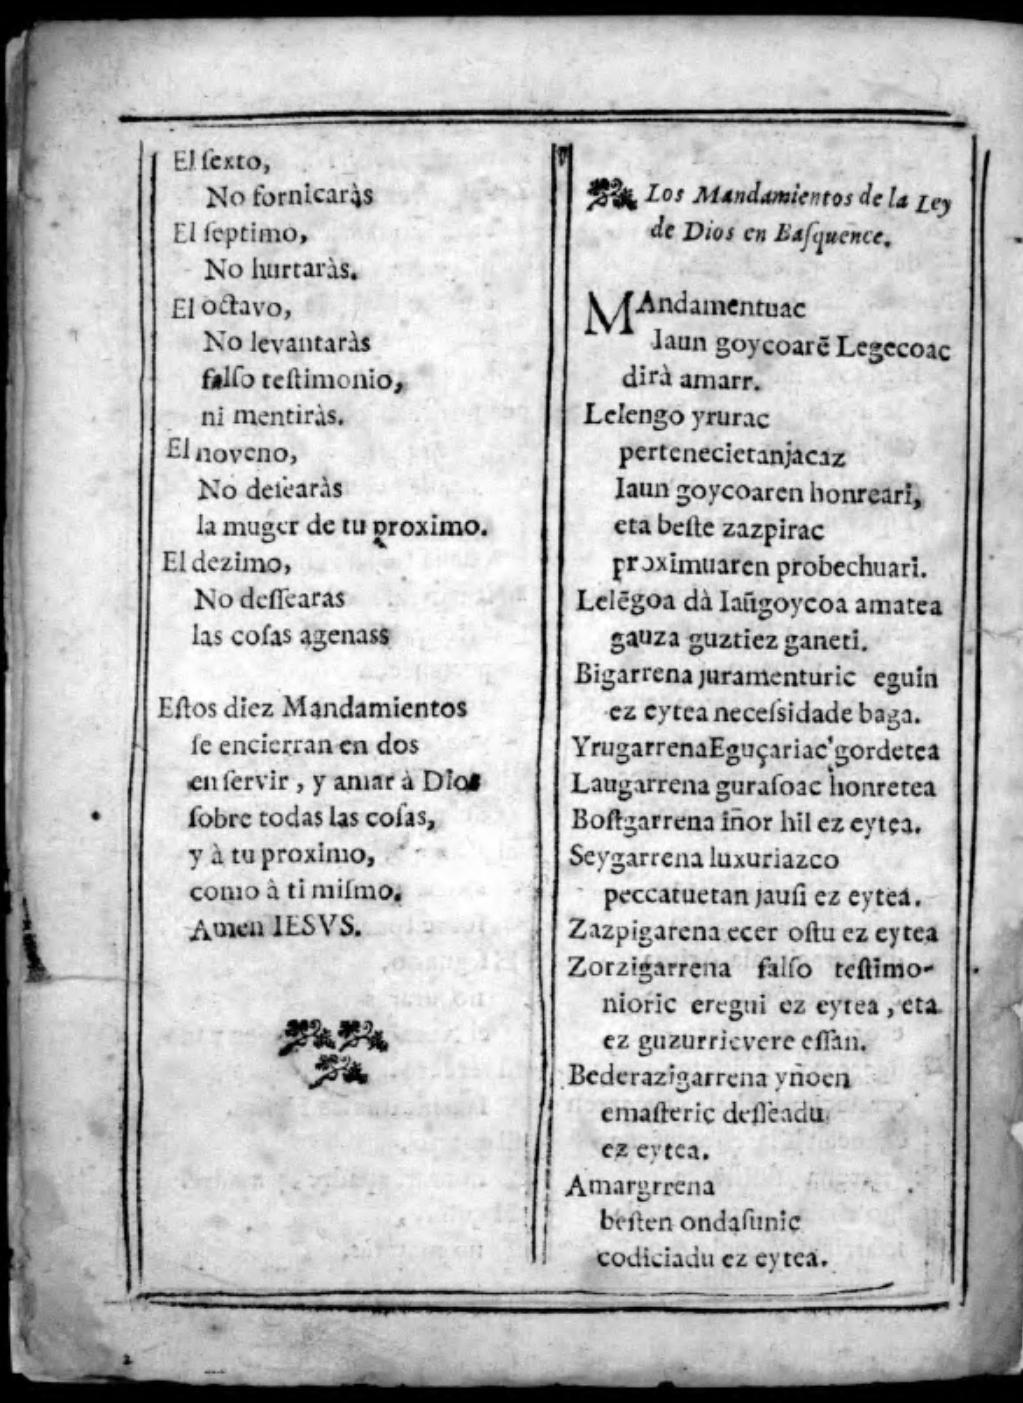 El ſexto,
No fornicaràs
El ſeptimo,
No hurtaràs.
El octavo,
No levantaràs
falſo teſtimonio,
ni mentiràs.
El noveno,
No deſearàs
la muger de tu proximo.
El dezimo,
No deſſearas
las coſas agenass
Eſtos diez Mandamientos
ſe encierran en dos
en ſervir, y amar à Dios
ſobre todas las coſas,
y à tu proximo,
como à ti miſmo.
Amen IESVS.
Los Mandamientos de la Ley
de Dios en Baſquence.
MAndamentuac
Iaun goycoarẽ Legecoac
dirà amarr.
Lelengo yrurac
pertenecietanjacaz
Iaun goycoaren honreari,
eta beſte zazpirac
proximuaren probechuari.
Lelẽgoa dà Iaũgoycoa amatea
gauza guztiez ganeti.
Bigarrena juramenturic eguin
ez eytea neceſsidade baga.
YrugarrenaEguçariac gordetea
Laugarrena guraſoac honretea
Boſtgarrena iñor hil ez eytea.
Seygarrena luxuriazco
peccatuetan jauſi ez eytea.
Zazpigarena ecer oſtu ez eytea
Zorzigarrena falſo teſtimo-
nioric eregui ez eytea, eta
ez guzurrievere eſſan.
Bederazigarrena yñoen
emaſteric deſſeadu
ez eytea.
Amargrrena
beſten ondaſunic
codiciadu ez eytea.